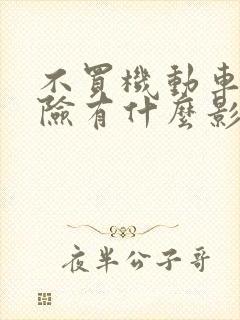 不買機動車
險有什麼影
夜半公子哥